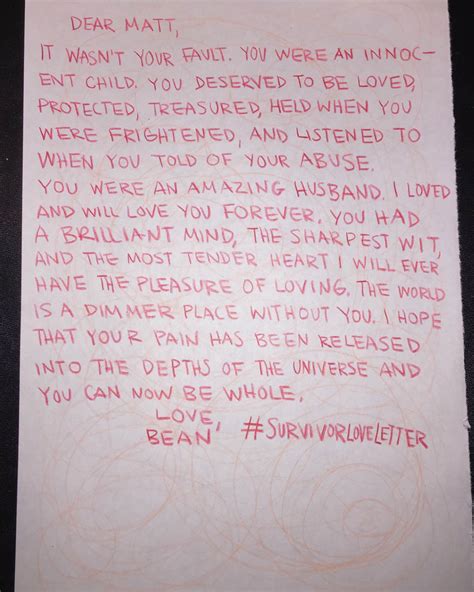 DEAR MATT,
IT WASN'T YOUR FAULT. YOU WERE AN INNOC-
ENT CHILD. YOU DESERVED TO BE LOVED,
PROTECTED, TREASURED, HELD WHEN YOU
WERE FRIGHTENED, AND LISTENED TO
WHEN YOU TOLD OF YOUR ABUSE.
YOU WERE AN AMAZING HUSBAND. I LOVED
AND WILL LOVE YOU FOREVER. YOU HAD
A BRILLIANT MIND, THE SHARPEST WIT,
AND THE MOST TENDER HEART I WILL EVER
HAVE THE PLEASURE OF LOVING. THE WORLD
IS A DIMMER PLACE WITHOUT YOU. I HOPE
THAT YOUR PAIN HAS BEEN RELEASED
INTO THE DEPTHS OF THE UNIVERSE AND
YOU CAN NOW BE WHOLE.
LOVE,
BEAN #SURVIVORLOVELETTER